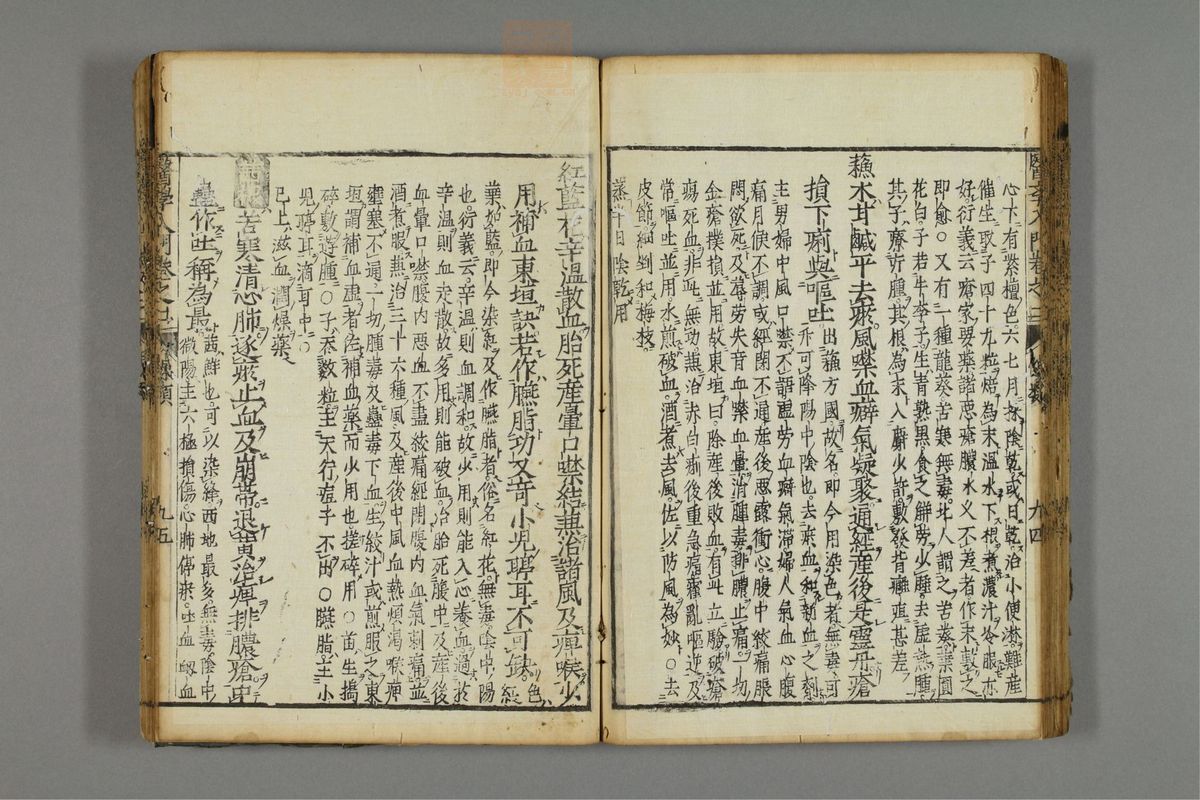 心下有紫檀色六七月採陰乾或日乾治小便淋難産
催生取子四十九粒焙為末溫水下根煮濃汁冷服亦
好衍義云瘡家要藥諸惡瘡膿水久不差者作末敷之
即愈○又有一種龍葵苦寒無毒北人謂之苦葵葉圓
花白子若牛李子生青熟黑食之解勞少睡去虛熱腫
其子療疔腫其根為末入麝火皆敷發背癰疽甚差
蘇木甘鹹平去瘀風噤血癖氣凝聚通經産後是靈丹瘡
損下痢與嘔吐
出蘇方國故名即今用染色者無毒可
升可降陽中陰也去瘀血和新血之劑
主男婦中風口禁不語虛勞血癖氣滯婦人氣血心腹
痛月候不調或經閉不通産後惡露衝心腹中絞痛脹
悶欲死及蓐勞失音血禁血暈消腫毒排膿止痛一切
金瘡撲損並用故東垣曰除産後敗血有此立驗破瘡
瘍死血非此無功兼治赤白痢後重急痛霍亂嘔逆及
常嘔吐並用水煎破血酒煮去風佐以防風為妙○去
皮節細剉和梅枝
蒸半日陰乾用
紅藍花辛溫散血胎死産暈口禁結兼治諸風及痺喉少
用補血東垣訣若作臙脂功又奇小兒聤耳不可缺
色紅
葉如藍即今染紅及作臙脂者俗名紅花無毒陰中陽
也衍義云辛溫則血調和故少用則能入心養血過於
辛溫則血走散故多用則能破血治胎死腹中及産後
血暈口噤腹內惡血不盡絞痛經閉腹內血氣刺痛並
酒煮服兼治三十六種風及産後中風血熱煩渴喉痺
壅塞不通一切腫毒及蠱毒下血生絞汁或煎服之東
垣謂補血虛者佐補血藥而少用也搓碎用○苗生搗
碎敷遊腫○子吞數粒主天行痘子不出○臙脂主小
兒聤耳滴耳中○
已上滋血潤燥藥
茜根苦寒清心肺逐瘀止血及崩帶退黃治痺排膿瘡中
蠱作吐稱為最
茜鮮也可以染絳西地最多無毒陰中
微陽主六極損傷心肺停瘀吐血衂血